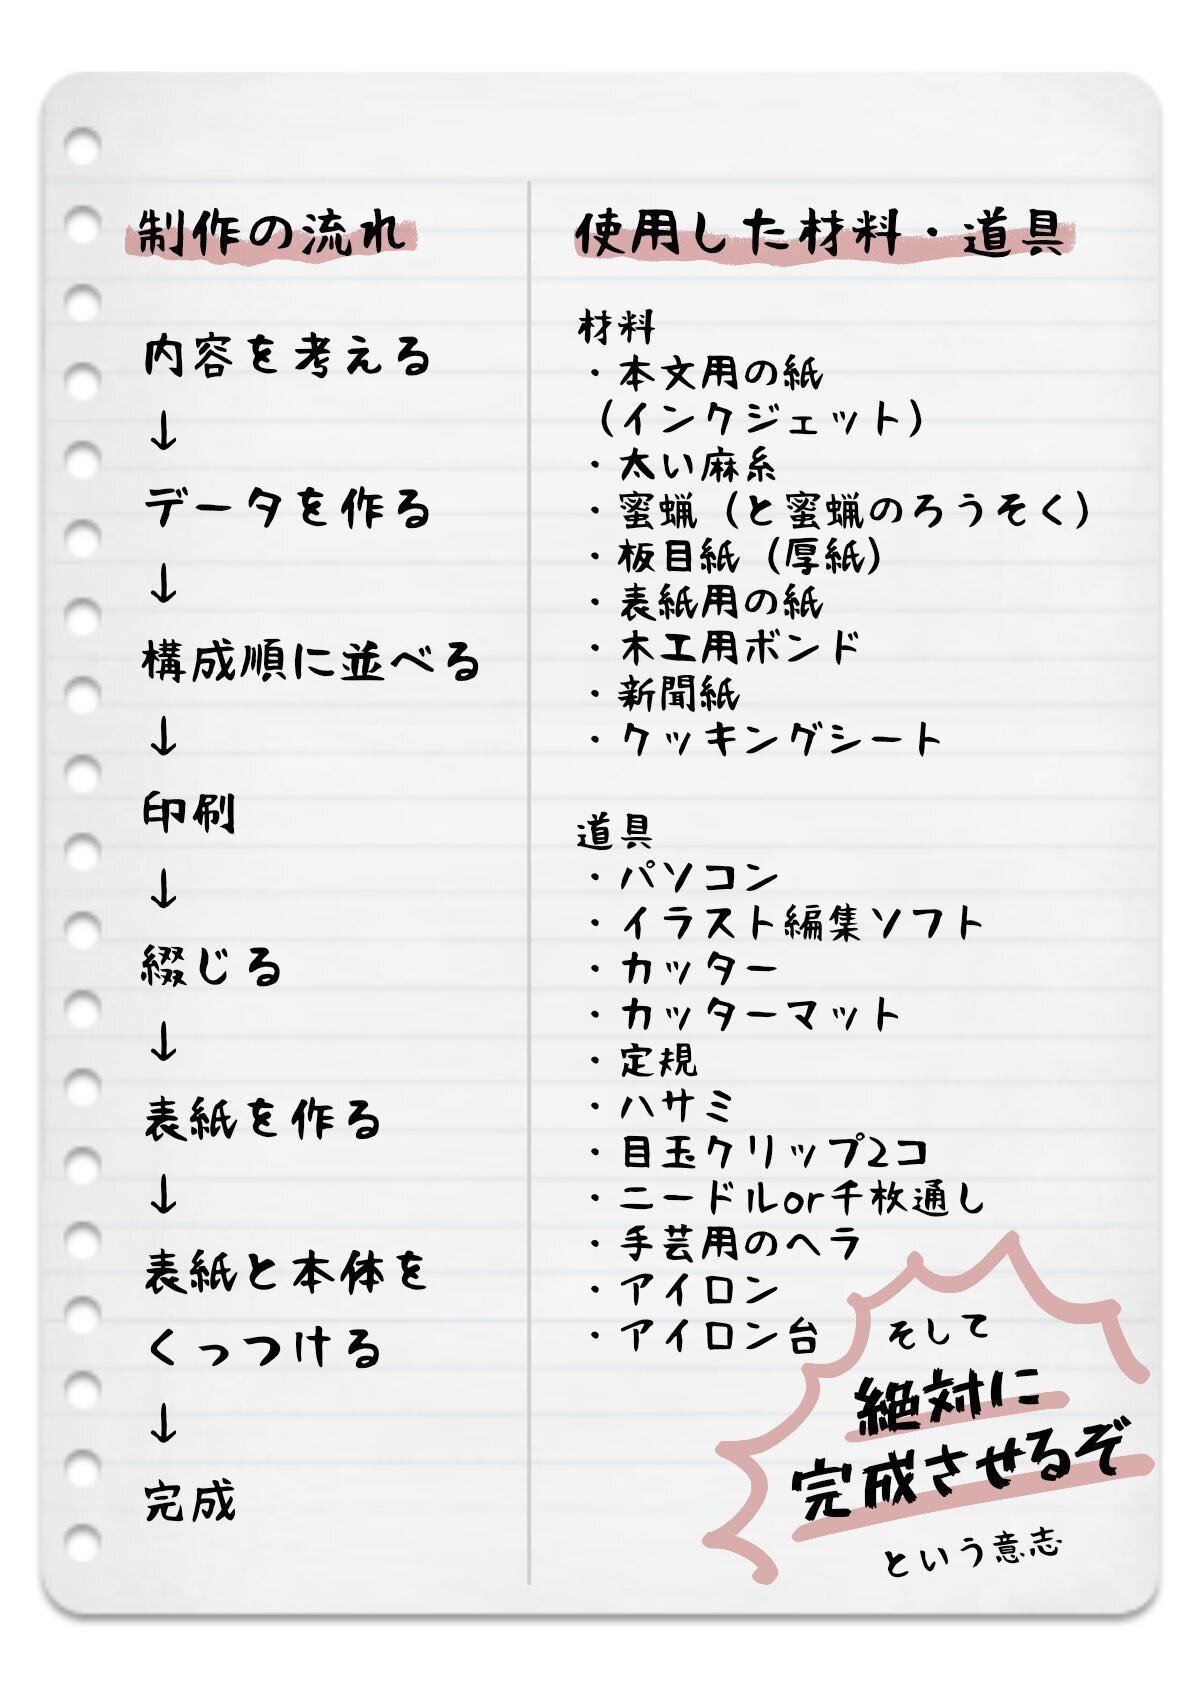 制作の流れ
内容を考える
↓
データを作る
↓
構成順に並べる
↓
印刷
↓
綴じる
↓
表紙を作る
↓
表紙と本体を
くっつける
↓
完成
使用した材料・道具
材料
・本文用の紙
（インクジェット）
・太い麻糸
・蜜蝋（と蜜蝋のろうそく）
・板目紙（厚紙）
・表紙用の紙
・木工用ボンド
・新聞紙
・クッキングシート
道具
・パソコン
・イラスト編集ソフト
・カッター
・カッターマット
・定規
・ハサミ
・目玉クリップ2コ
・ニードルor千枚通し
・手芸用のヘラ
・アイロン
・アイロン台
そして
絶対に
完成させるぞ
という意志